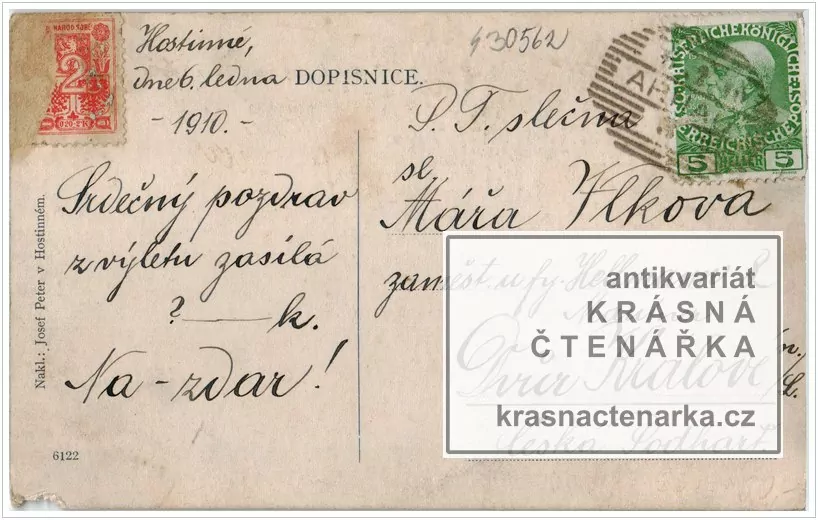 NÁROD SOBĚ
2
Hostinné,
dne 6. ledna DOPISNICE.
-1910.-
430562
KAIS. KÖNIGLICHE
ÖSTERREICHISCHE
5 HELLER 5
P. T. slečna
sl.
Mářa Vlkova
zaměst. u fy.
Dvůr Králové
Česka
Srdečný pozdrav
z výletu zasílá
? — k.
Na-zdar!
Nakl.: Josef Peter v Hostinném.
6122
antikvariát
KRÁSNÁ
ČTENÁŘKA
krasnactenarka.cz